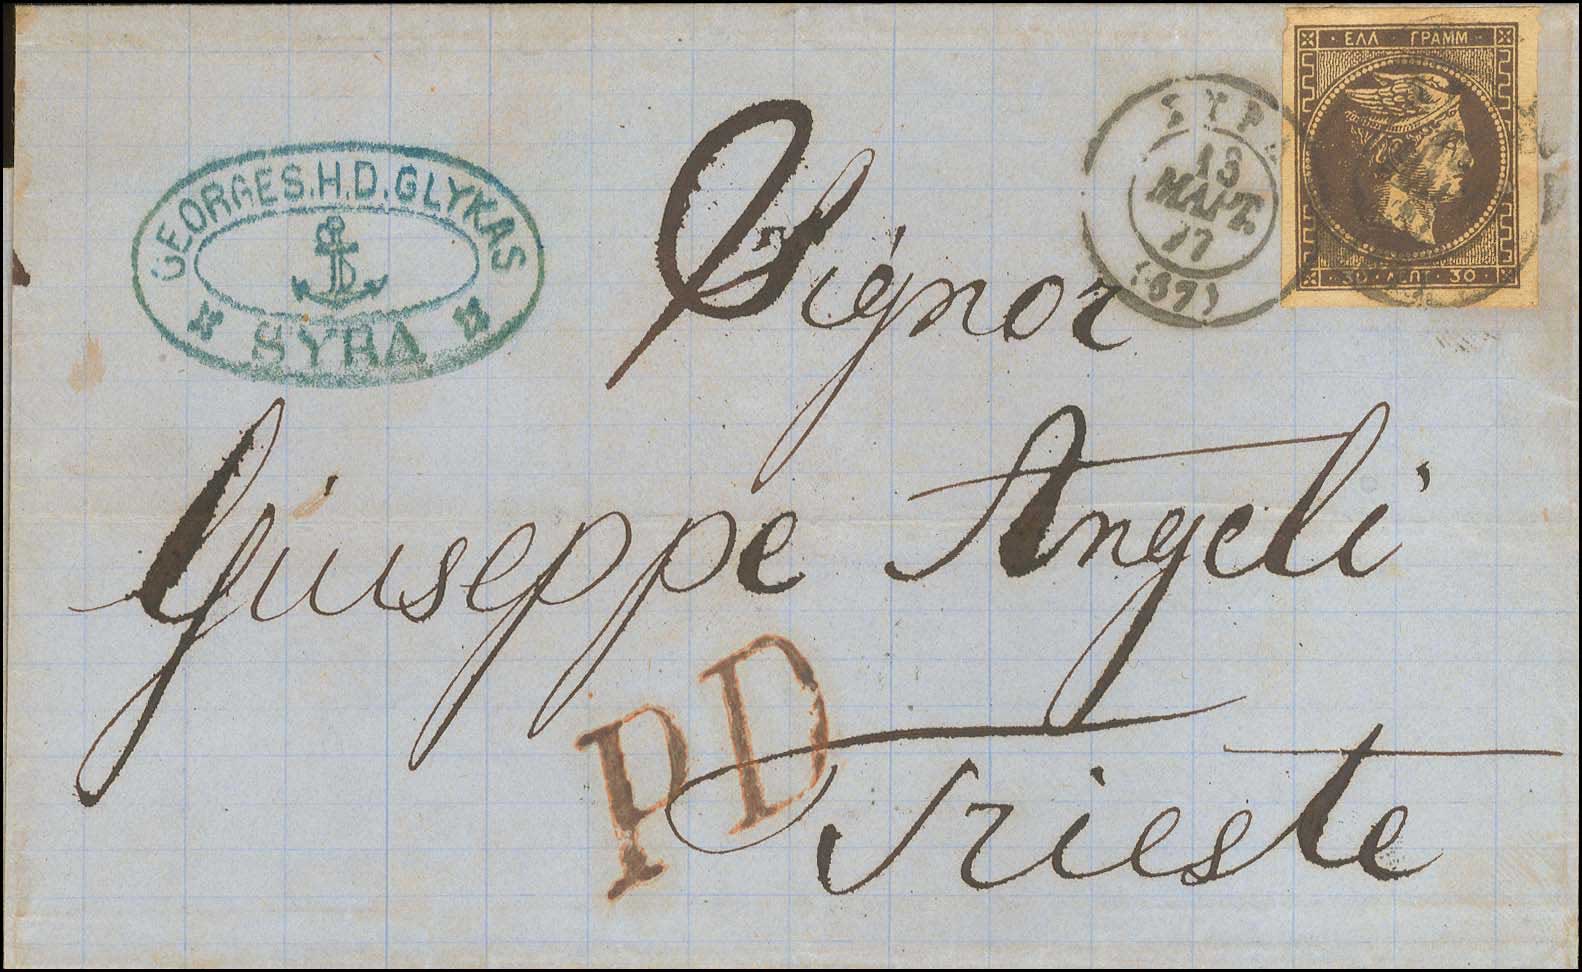 GEORGES.H.D.GLYKAS
SYRA
ΣΥΡ
13
ΜΑΡΤ.
77
(67)
ΕΛΛ ΓΡΑΜΜ
30 ΛΕΠΤ 30
Signor
Giuseppe Angeli
PD
Trieste